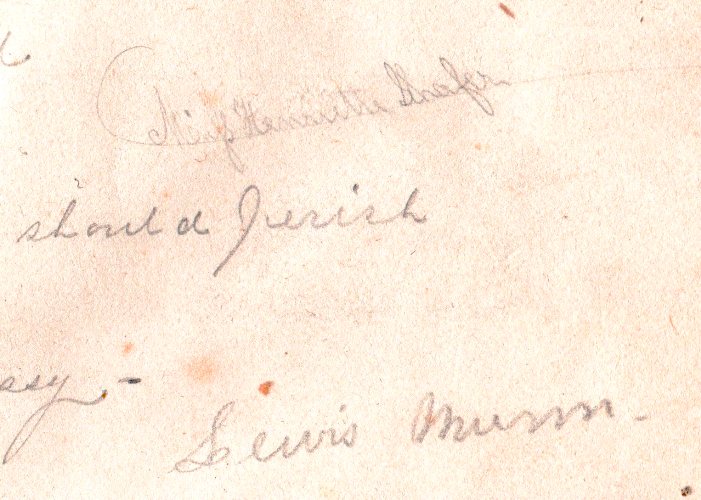 Miss Henrietta Shafer
should perish
Lewis Munn.